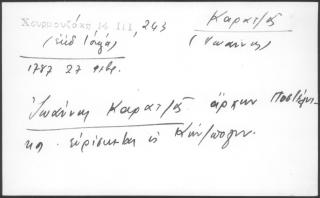 Χουρμουζάκη 14 III, 243
Καρατζᾶς
(Ἰωάννης)
1787 27 Φεβ.
Ἰωάννης Καρατζᾶς ἄρχων Ποστέλνι-
κος εὑρίσκεται ἐν Κων/πόλει.